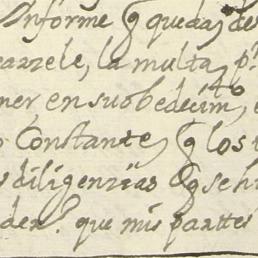 Informe q quedas de
carzele, la multa, p.
ner, en suobedecim.to
Constante, q los
diligenzias q se hi
den. que mis parttes